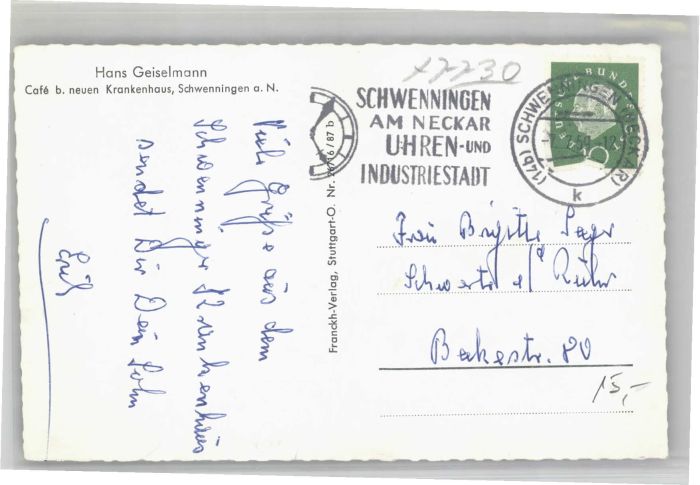 Hans Geiselmann
Café b. neuen Krankenhaus, Schwenningen a. N.
x7730
SCHWENNINGEN
AM NECKAR
UHREN- UND
INDUSTRIESTADT
(14b) SCHWENNINGEN (NECKAR)
k
Viele Grüße aus dem
Schwenninger Krankenhaus
sendet Dir Dein Sohn
Erich
Franckh-Verlag, Stuttgart-O. Nr. 26/16/87 b
Frau Brigitte
Schwerte a/d Ruhr
Bekestr. 80
15,-